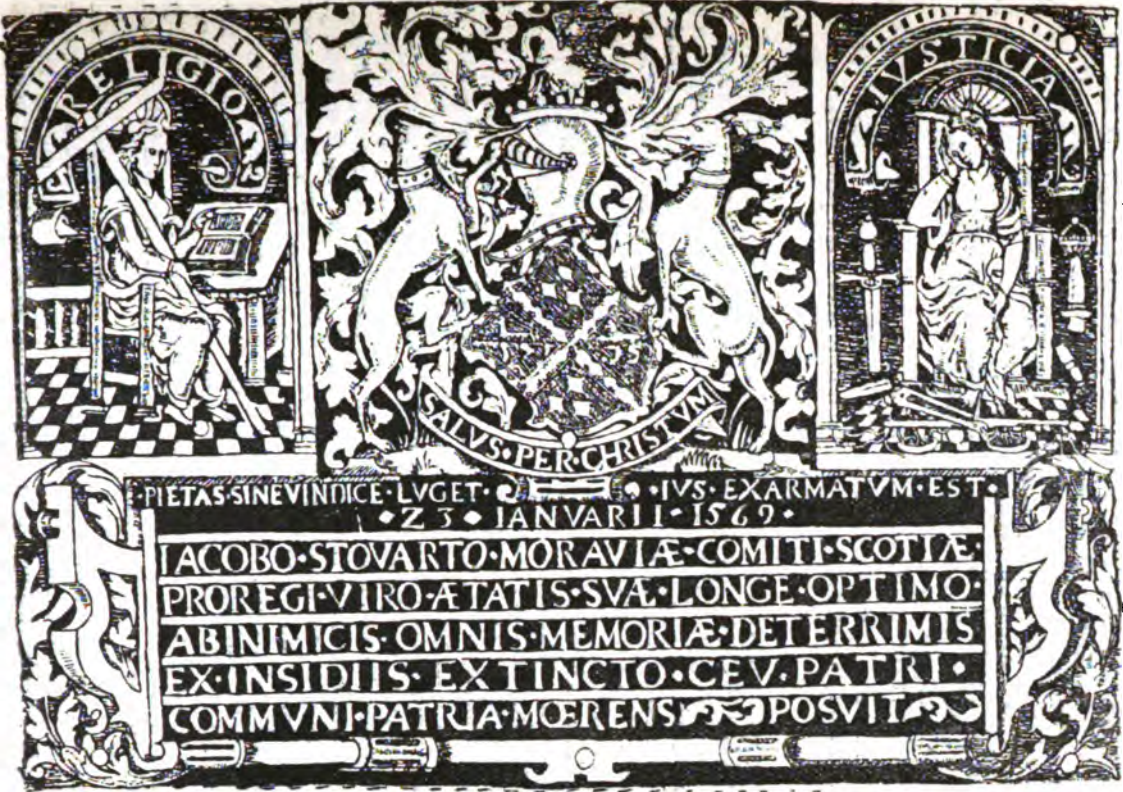 RELIGIO
IVSTICIA
SALVS·PER·CHRISTVM
·PIETAS·SINE VINDICE·LVGET· ·IVS·EXARMATVM·EST·
·23· IANVARII·1569·
IACOBO·STOVARTO·MORAVIÆ·COMITI·SCOTIÆ·
PROREGI·VIRO·ÆTATIS·SVÆ·LONGE·OPTIMO·
AB INIMICIS·OMNIS·MEMORIÆ·DETERRIMIS
EX·INSIDIIS·EXTINCTO·CEV·PATRI·
COMMVNI·PATRIA·MŒRENS POSVIT